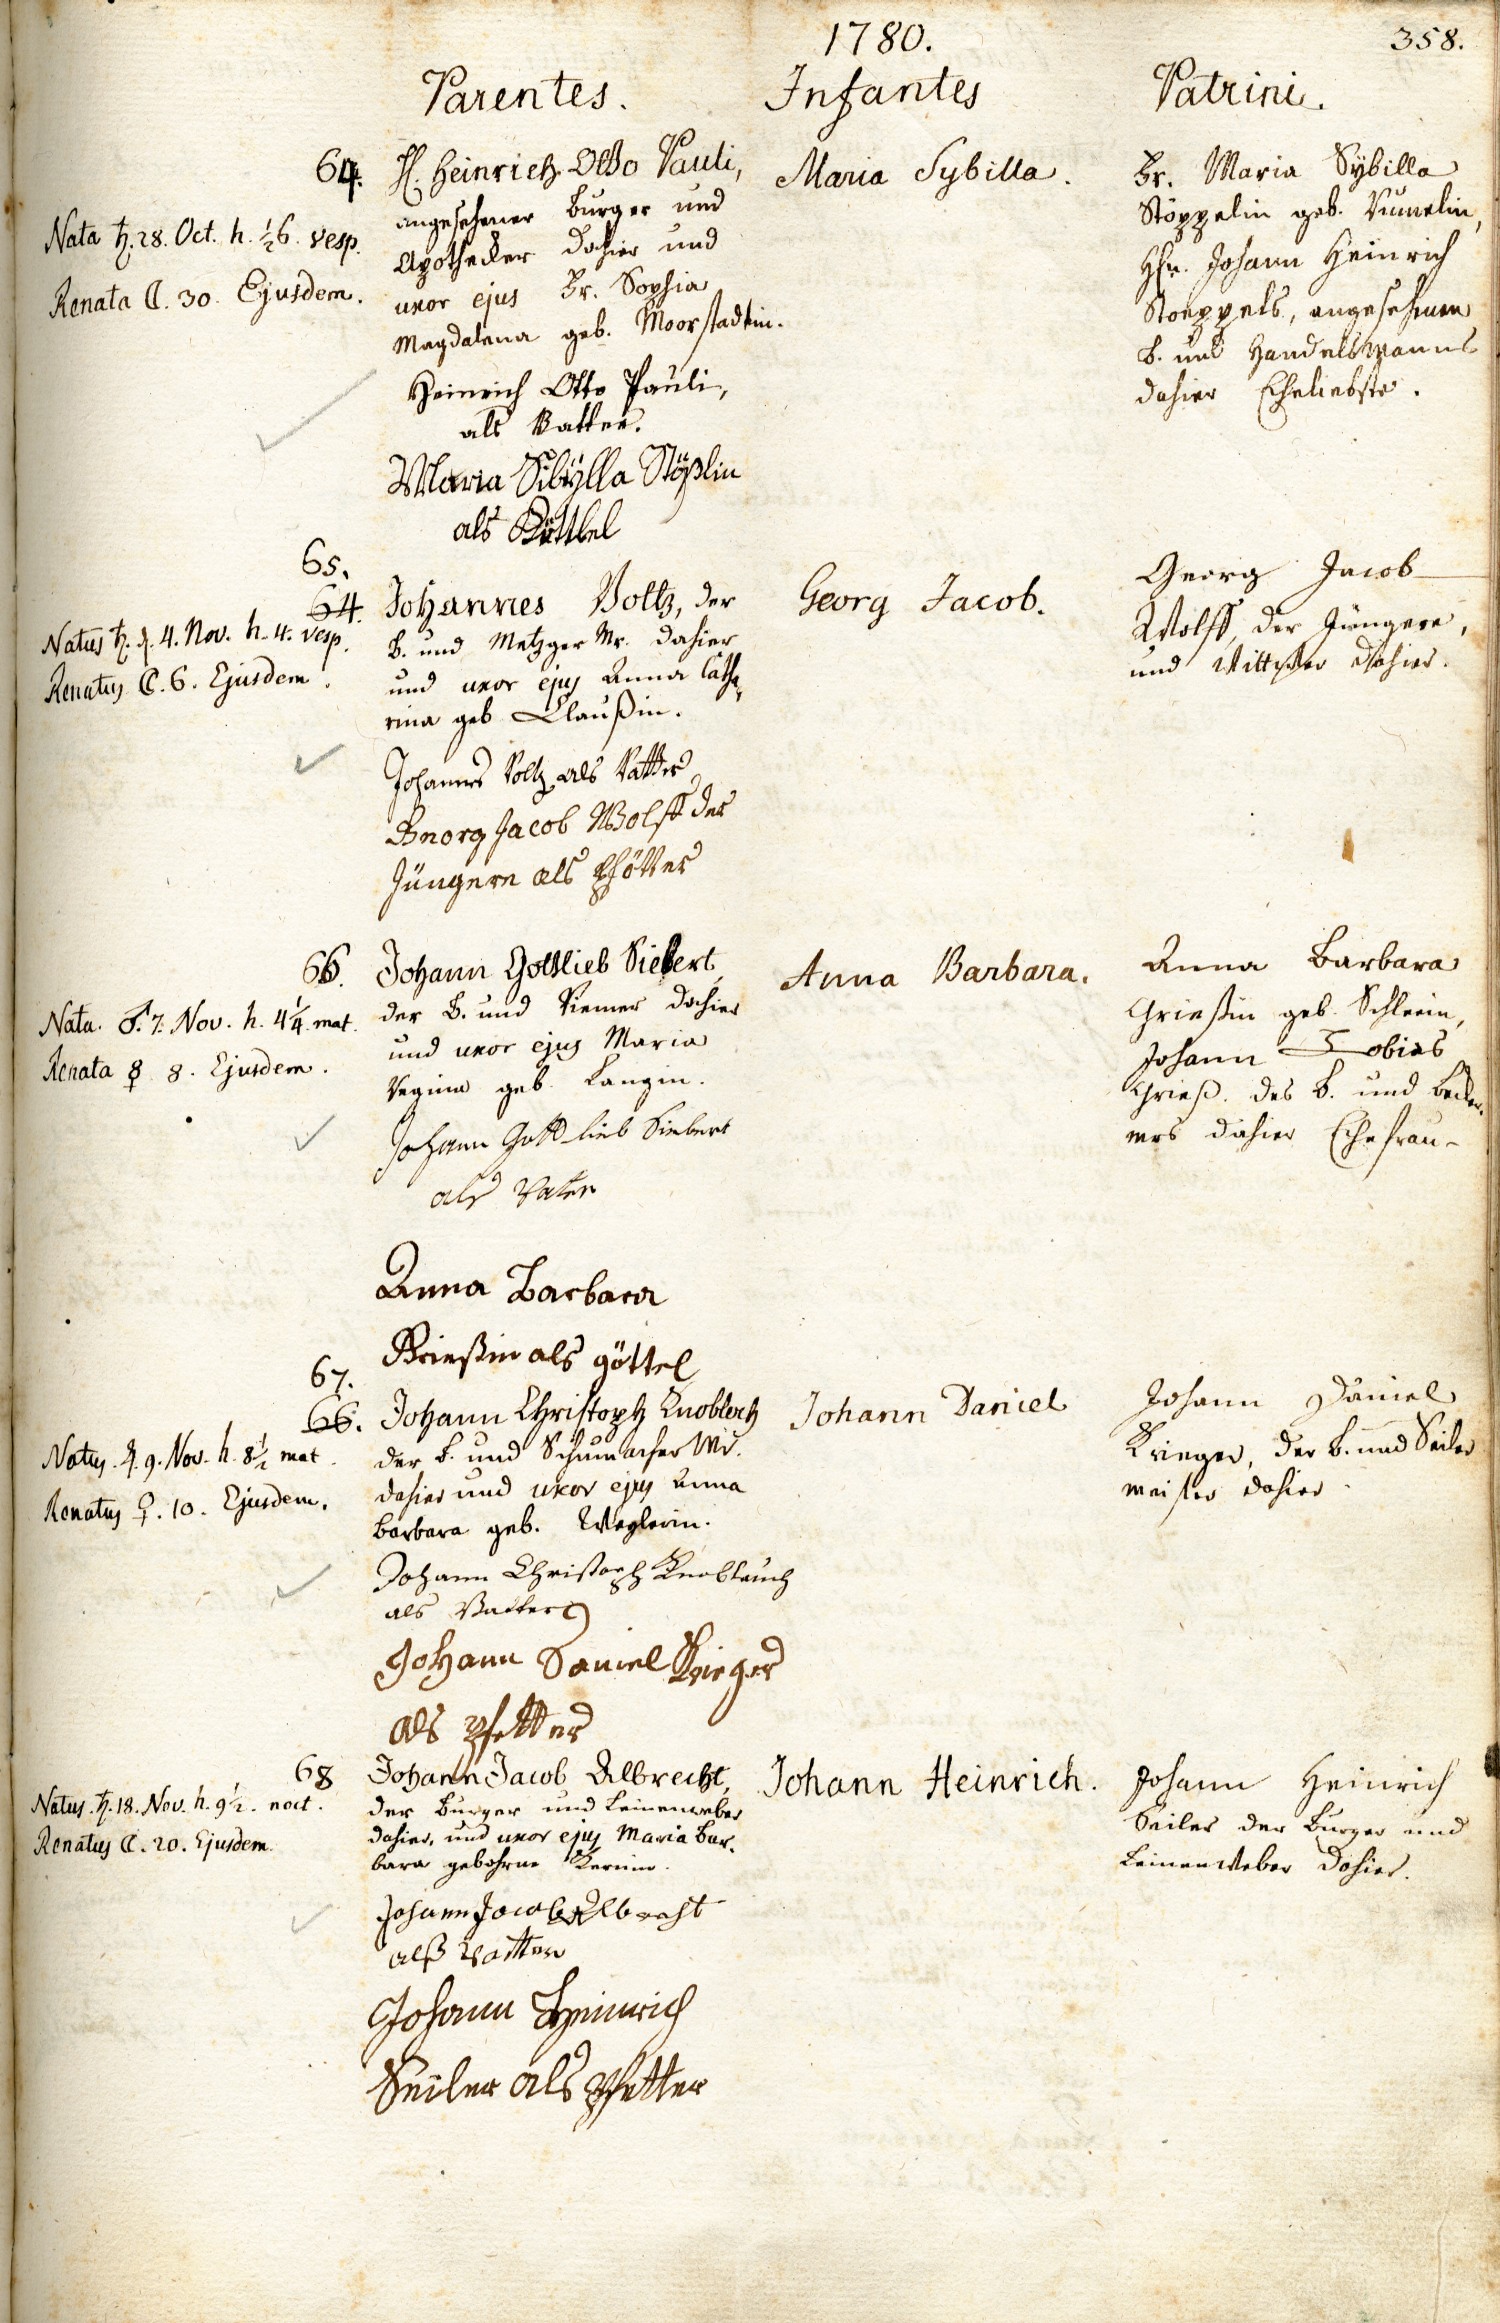 1780.
358.
Parentes.
Infantes
Patrini.
64.
Nata ♄. 28. Oct. h. ½6. vesp.
Renata ☾. 30. Ejusdem.
H. Heinrich Otto Pauli,
angesehener Burger und
Apothecker dahier und
uxor ejus Fr. Sophia
Magdalena geb. Moorstadtin.
Heinrich Otto Pauli,
als Vatter.
Maria Sibÿlla Stößlin
als Göttel
Maria Sybilla.
Fr. Maria Sybilla
Stöppelin geb.
Hhr. Johann Heinrich
Stoeppels, angesehenen
b. und Handelsmanns
dahier Eheliebste.
65.
64.
Natus ♄. 4. Nov. h. 4. vesp.
Renatus ☾. 6. Ejusdem.
Johannes Voltz, der
b. und Metzger Mr. dahier
und uxor ejus Anna Catha-
rina geb. Claußin.
Johannes Voltz als Vatter
Georg Jacob Wolff der
Jüngere als Pfötter
Georg Jacob.
Georg Jacob
Wolff, der Jüngere,
und dahier.
66.
Nata. ♂. 7. Nov. h. 4¼. mat.
Renata ☿ 8. Ejusdem.
Johann Gottlieb Siebert
der b. und Riemer dahier
und uxor ejus Maria
Regina geb. Langin.
Johann Gottlieb Siebert
als Vater
Anna Barbara
Grießin als göttel
Anna Barbara.
Anna Barbara
Grießin geb.
Johann Tobias
Grieß. des b. und
dahier Ehefrau
67.
66.
Natus. ♃. 9. Nov. h. 8½ mat.
Renatus ♀. 10. Ejusdem.
Johann Christoph Knobloch
der b. und Schumacher Mr.
dahier und uxor ejus Anna
Barbara geb. Weglerin.
Johann Christoph Knoblauch
als Vatter
Johann Daniel Krieger
als Pfetter
Johann Daniel
Johann Daniel
Krieger, der b. und Seiler
meister dahier.
68
Natus. ♄. 18. Nov. h. 9½. noct.
Renatus ☾. 20. Ejusdem.
Johann Jacob Albrecht,
der Burger und Leinenweber
dahier, und uxor ejus Maria Bar-
bara gebohrne
Johann Jacob Albrecht
alß Vatter
Johann Heinrich
Seiler als Pfetter
Johann Heinrich.
Johann Heinrich
Seiler der Burger und
Leinenweber dahier.